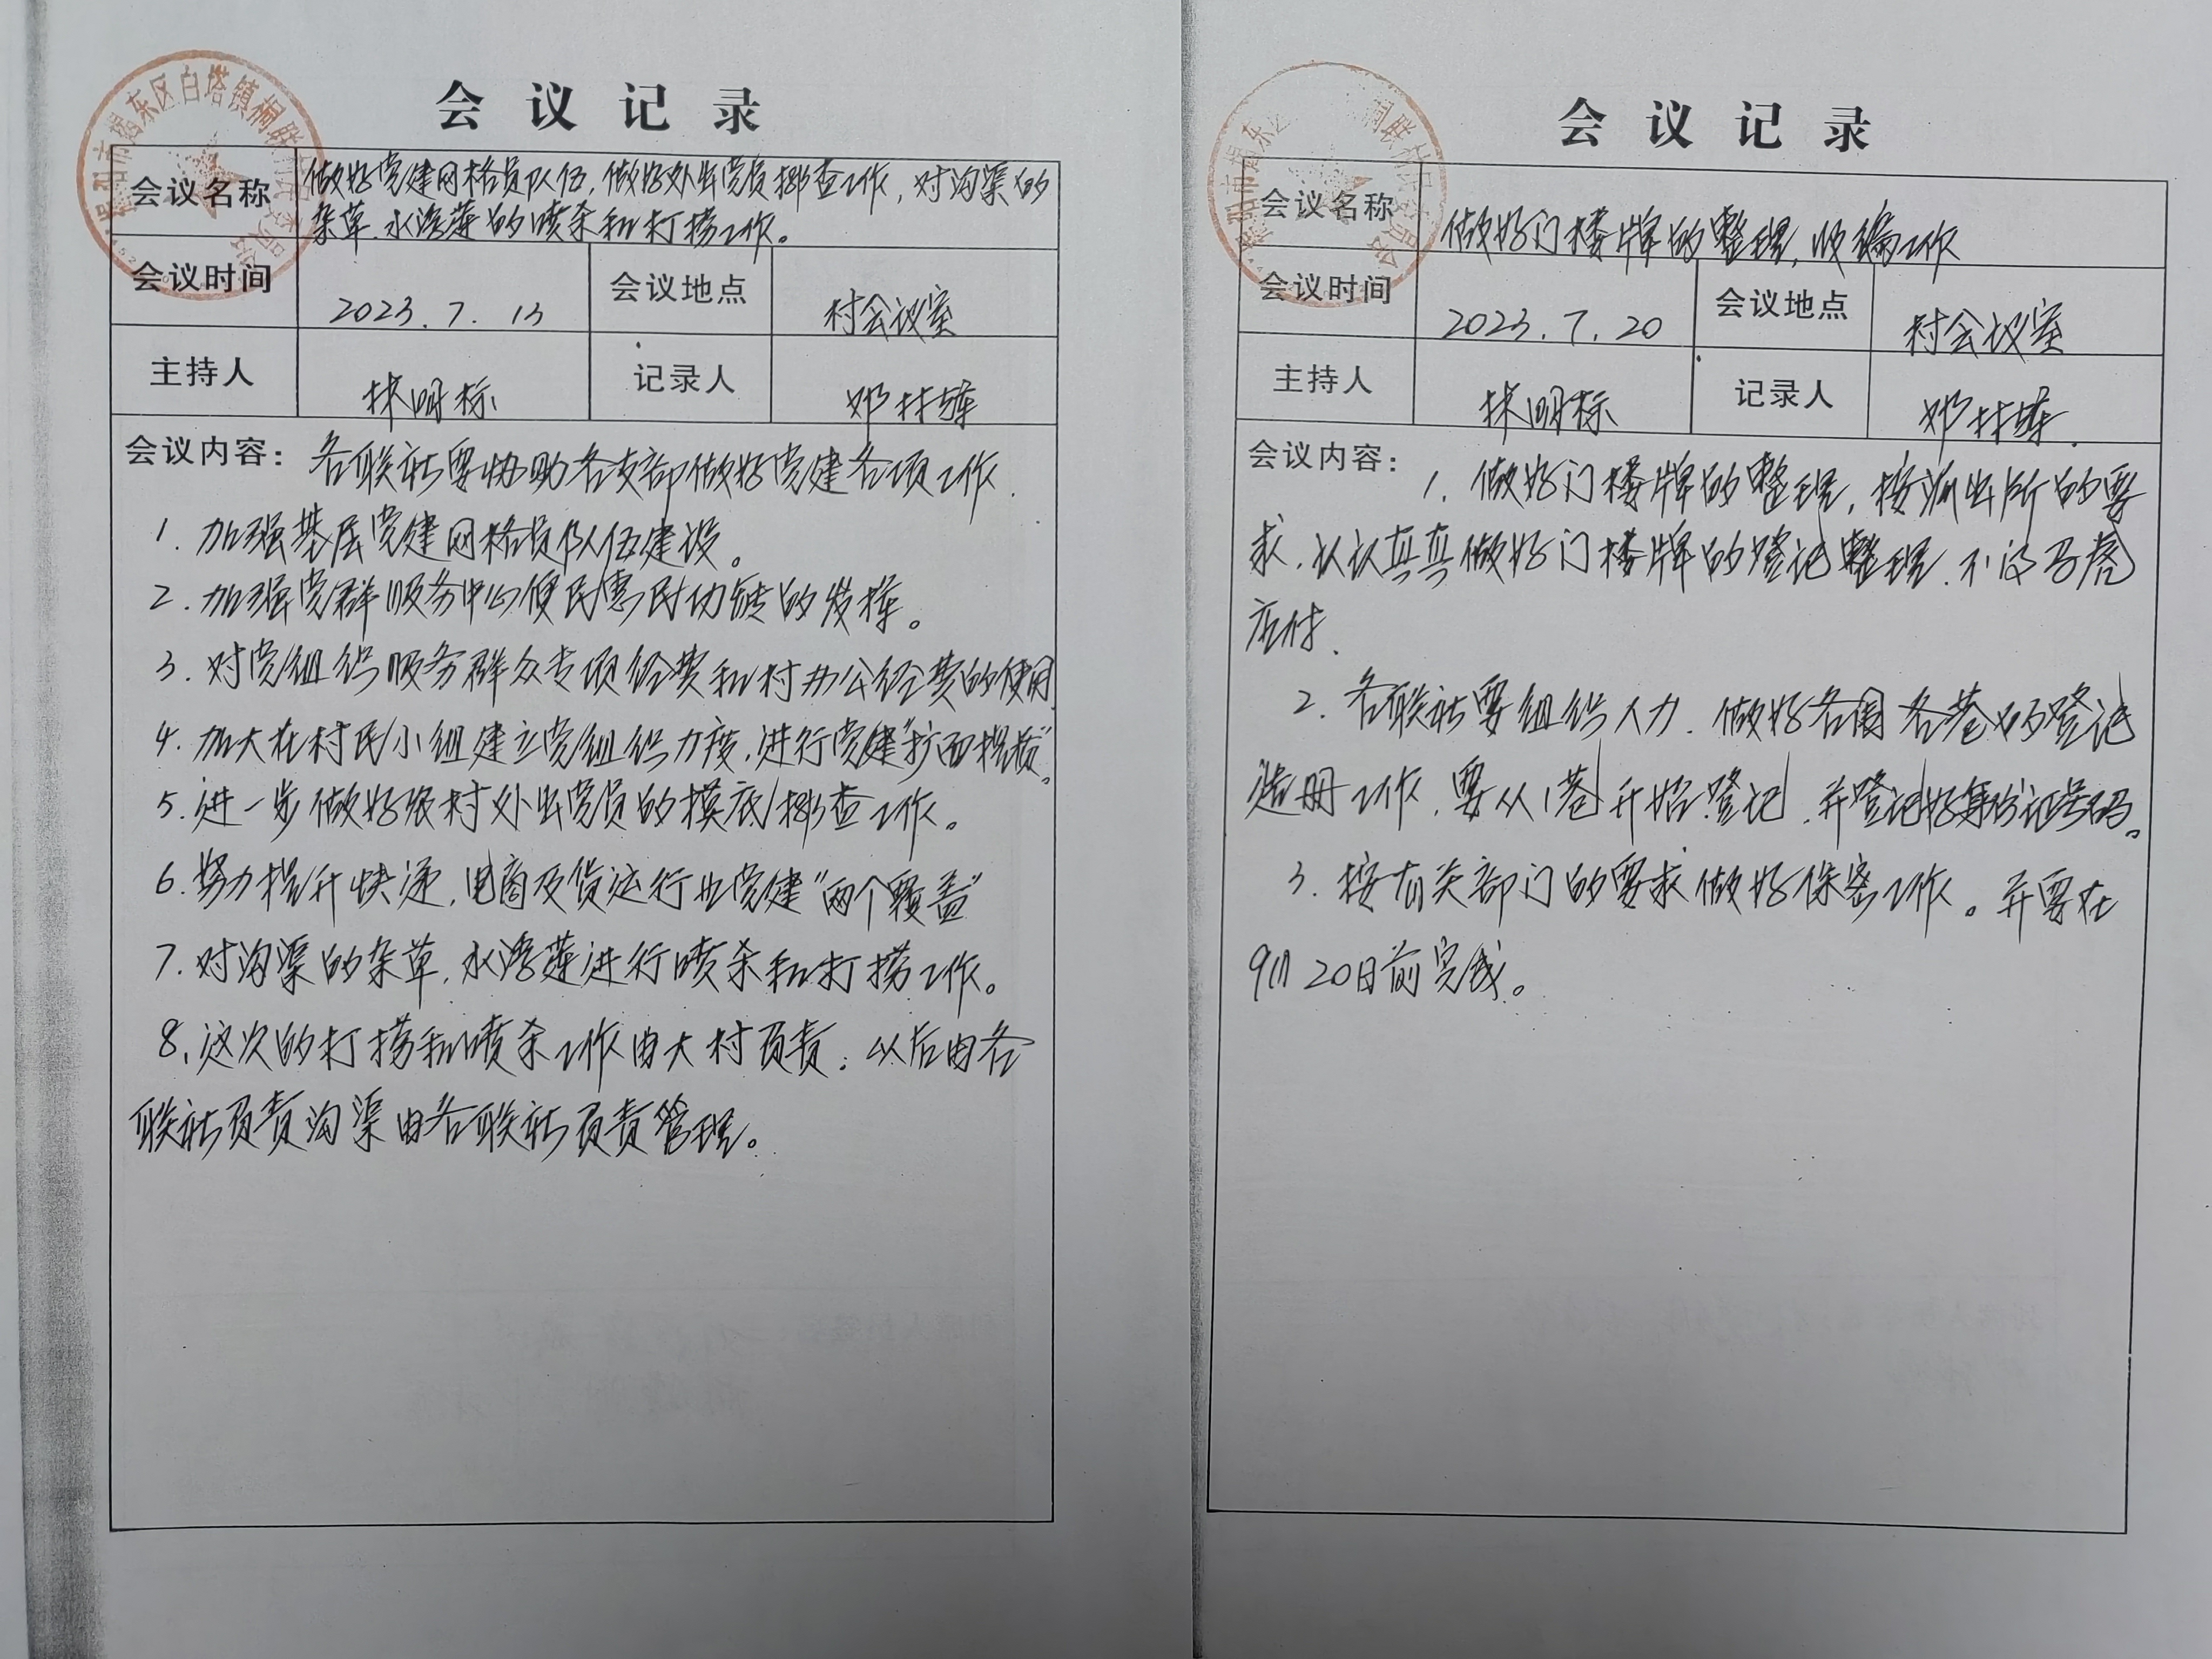 会议记录
会议名称
做好党建网格员队伍,做好外出党员排查工作,对沟渠的
杂草.水浮莲的喷杀和打捞工作。
会议时间
2023.7.13
会议地点
村会议室
主持人
林明标
记录人
邓林雄
会议内容:各联社要协助各支部做好党建各项工作.
1.加强基层党建网格员队伍建设。
2.加强党群服务中心便民惠民功能的发挥。
3.对党组织服务群众专项经费和村办公经费的使用
4.加大在村民小组建立党组织力度,进行党建“扩面提质”。
5.进一步做好农村外出党员的摸底排查工作。
6.努力提升快递,电商及货运行业党建“两个覆盖”
7.对沟渠的杂草,水浮莲进行喷杀和打捞工作。
8、这次的打捞和喷杀工作由大村负责.以后由各
联社负责沟渠由各联社负责管理。
会议记录
会议名称
做好门楼牌的整理,收编工作
会议时间
2023.7.20
会议地点
村会议室
主持人
林明标
记录人
邓林雄
会议内容:1.做好门楼牌的整理,按派出所的要
求.认认真真做好门楼牌的登记整理.不没马虎
应付.
2.各联社要组织人力.做好各围各巷的登记
造册工作.要从1巷开始登记.并登记好身份证号码。
3.按有关部门的要求做好保密工作。并要在
9月20日前完成。